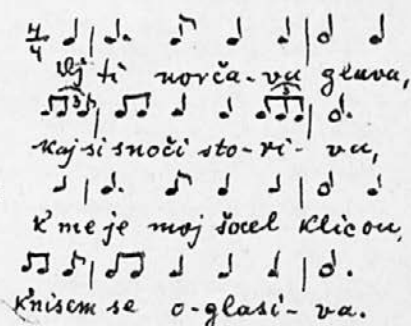 4/4
Oj ti norča-va glava,
3 3
kaj si snoči sto-ri-va,
k' me je moj šocel klicou,
k' nisem se o-glasi-va.